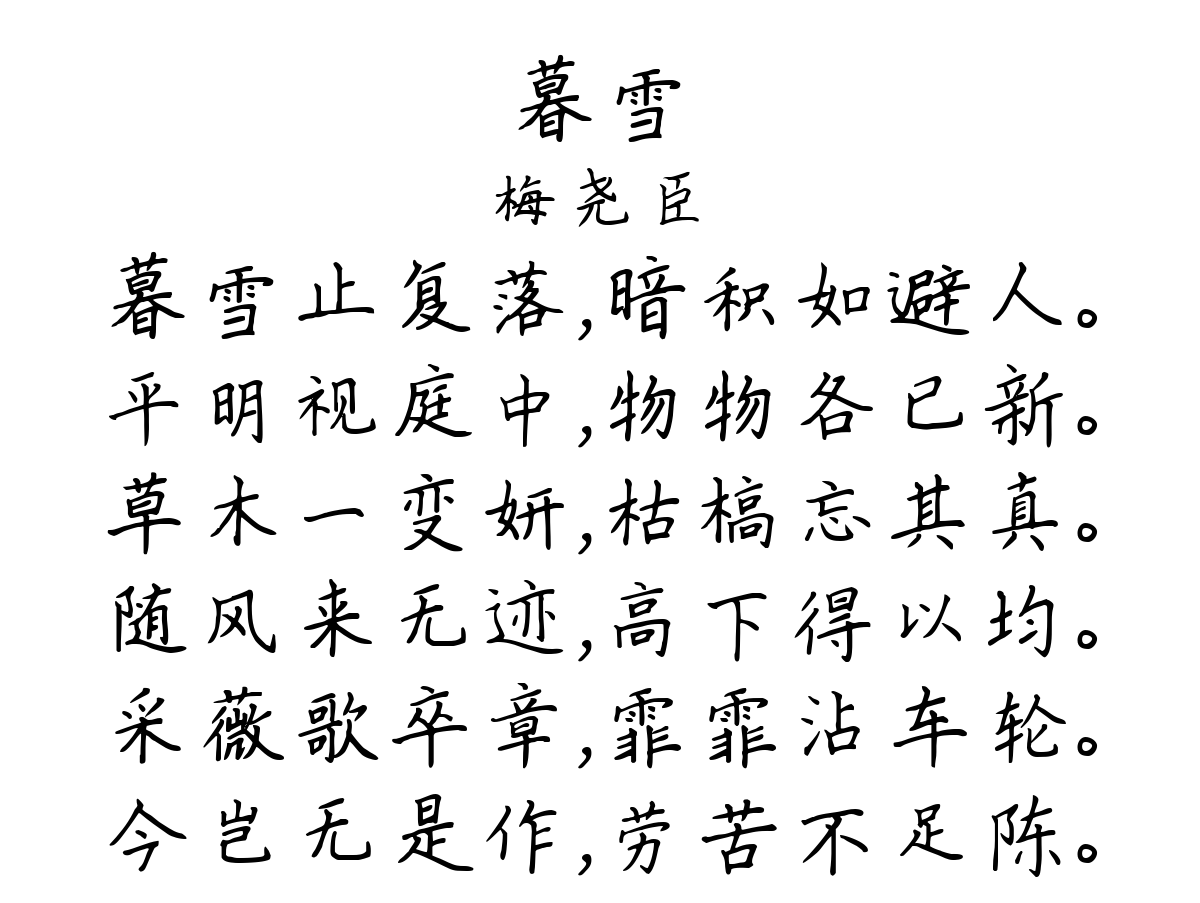 暮雪
梅尧臣
暮雪止复落,暗积如避人。
平明视庭中,物物各已新。
草木一变妍,枯槁忘其真。
随风来无迹,高下得以均。
采薇歌卒章,霏霏沾车轮。
今岂无是作,劳苦不足陈。